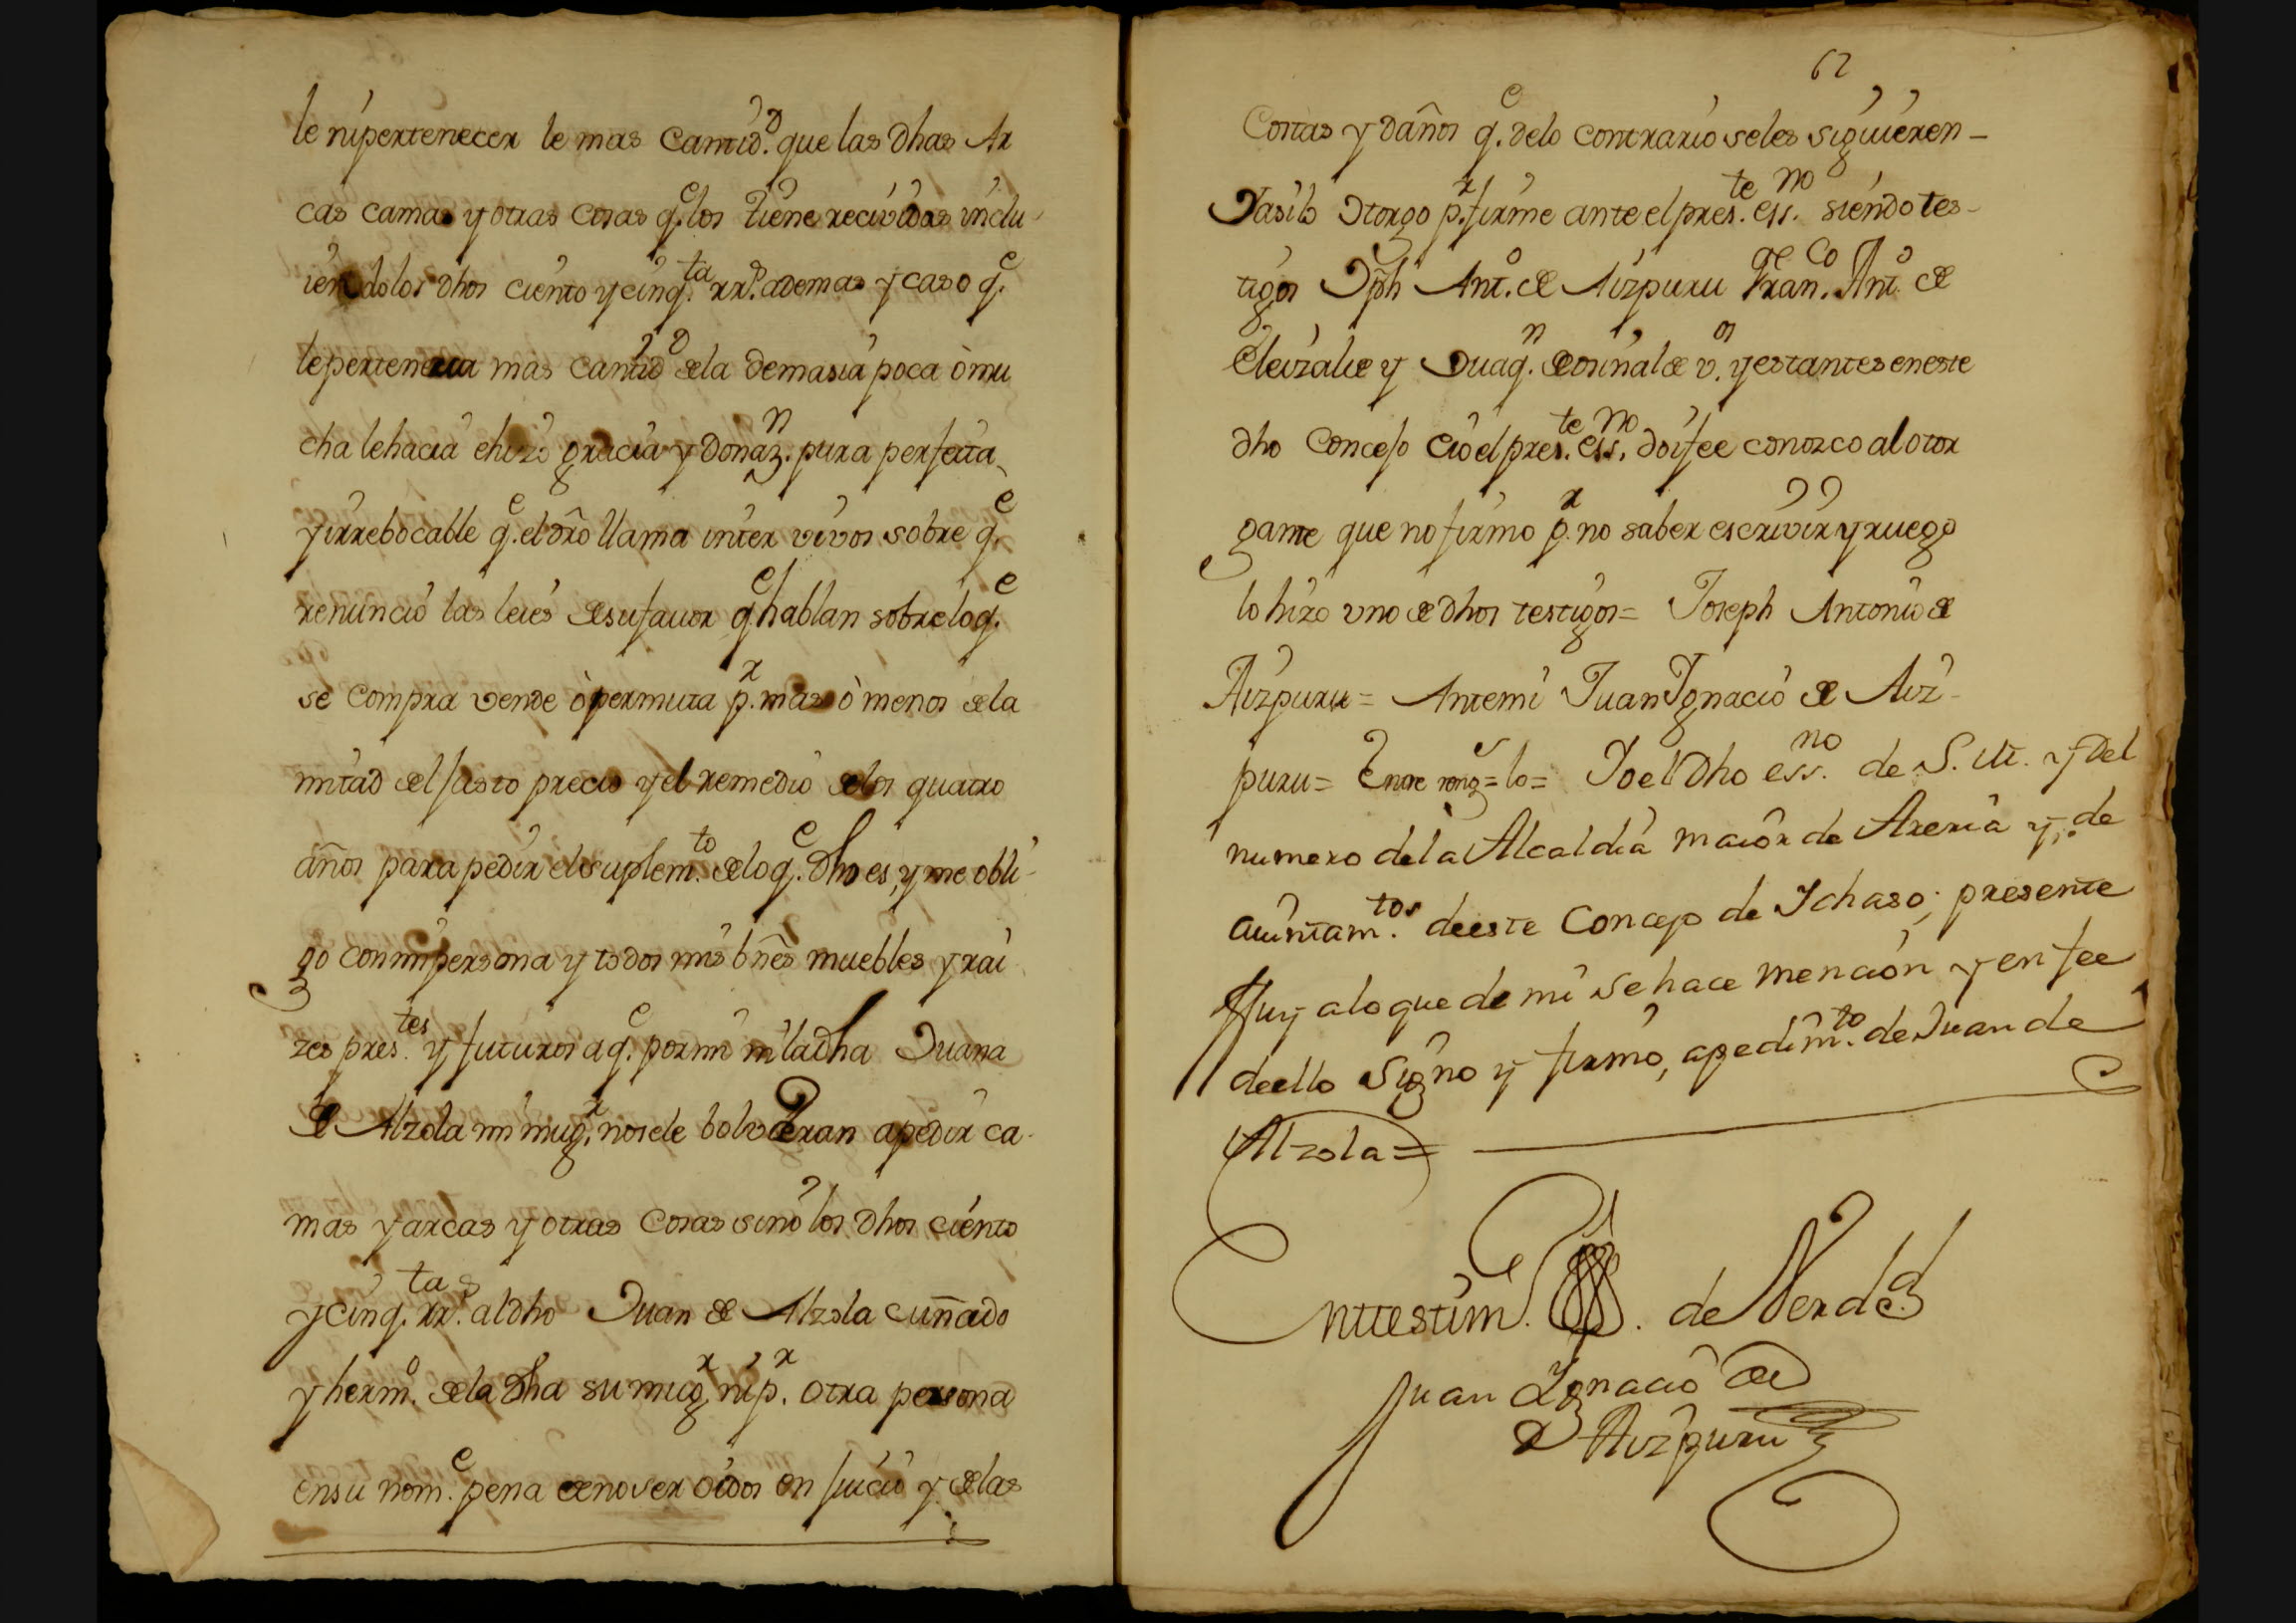 le ni pertenecer le mas cantid.d que las dhas Ar
cas camas y otras cosas q.e los tiene recividos inclu
iendo los dhos ciento y cinq.ta rr.s ademas y caso q.e
le pertenecia mas cantid.d de la demasia poca ò mu
cha le hacia è hizo gracia y donaz.n pura perfecta
y irrebocable q.e el dro llama inter vivos sobre q.e
renunció las leies de su favor q.e hablan sobre lo q.e
se compra vende ò permuta p.r mas ò menos de la
mitad del justo precio y el remedio de los quatro
años para pedir el suplem.to de lo q.e dho es, y me obli-
go con mi persona y todos mis bñes muebles y rai
zes pres.tes y futuros a q.e por mi ni la dha Juana
de Alzola mi mug.r no se le bolveran a pedir ca-
mas y arcas y otras cosas sino los dhos ciento
y cinq.ta rr.s al dho Juan de Alzola cuñado
y herm.o de la dha su mug.r ni p.r otra persona
en su nom.e pena de no ser oidos en juicio y de las
62
Costas y daños q.e de lo contrario se les siguieren -
Y asi lo otorgo p.r firme ante el pres.te ess.no siendo tes-
tigos Jph Ant.o de Aizpuru Fran.co Ant.o de
Eleizalde y Juaq.n de Osinalde v.os y estantes en este
dho Concejo è io el pres.te ess.no doi fee conozco al otor
gante que no firmo p.r no saber escrivir y ruego
lo hizo uno de dhos testigos = Joseph Antonio de
Aizpuru = Ante mi Juan Ignacio de Aiz-
puru = Entre rong.s = lo = Io el dho ess.no de S. M. y del
numero de la Alcaldia maior de Areria y, de
aiuntam.tos de este Concejo de Ichaso; presente
fuy a lo que de mi se hace mencion y en fee
de ello signo y firmo, a pedim.to de Juan de
Alzola =
En testim. . de Verd.d
Juan Ignacio de
Aizpuru